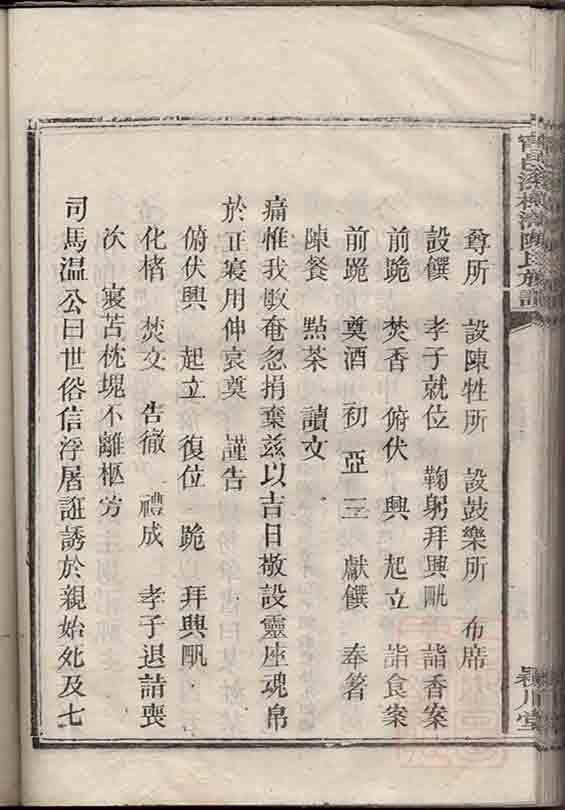 尊所 設陳牲所 設鼓樂所 布席
設饌 孝子就位 鞠躬拜興 詣香案
前跪 焚香 俯伏 興 起立 詣食案
前跪 奠酒 初亞三獻饌 奉箸
陳餐 點茶 讀文
痛惟我 奄忽捐棄茲以吉日敬設靈座魂帛
於正寢用伸哀奠 謹告
俯伏興 起立 復位 跪 拜興
化楮 焚文 告徹 禮成 孝子退詣喪
次 寢苫枕塊不離柩旁
司馬温公曰世俗信浮屠誑誘於親始死及七
陳氏族譜
潁川堂